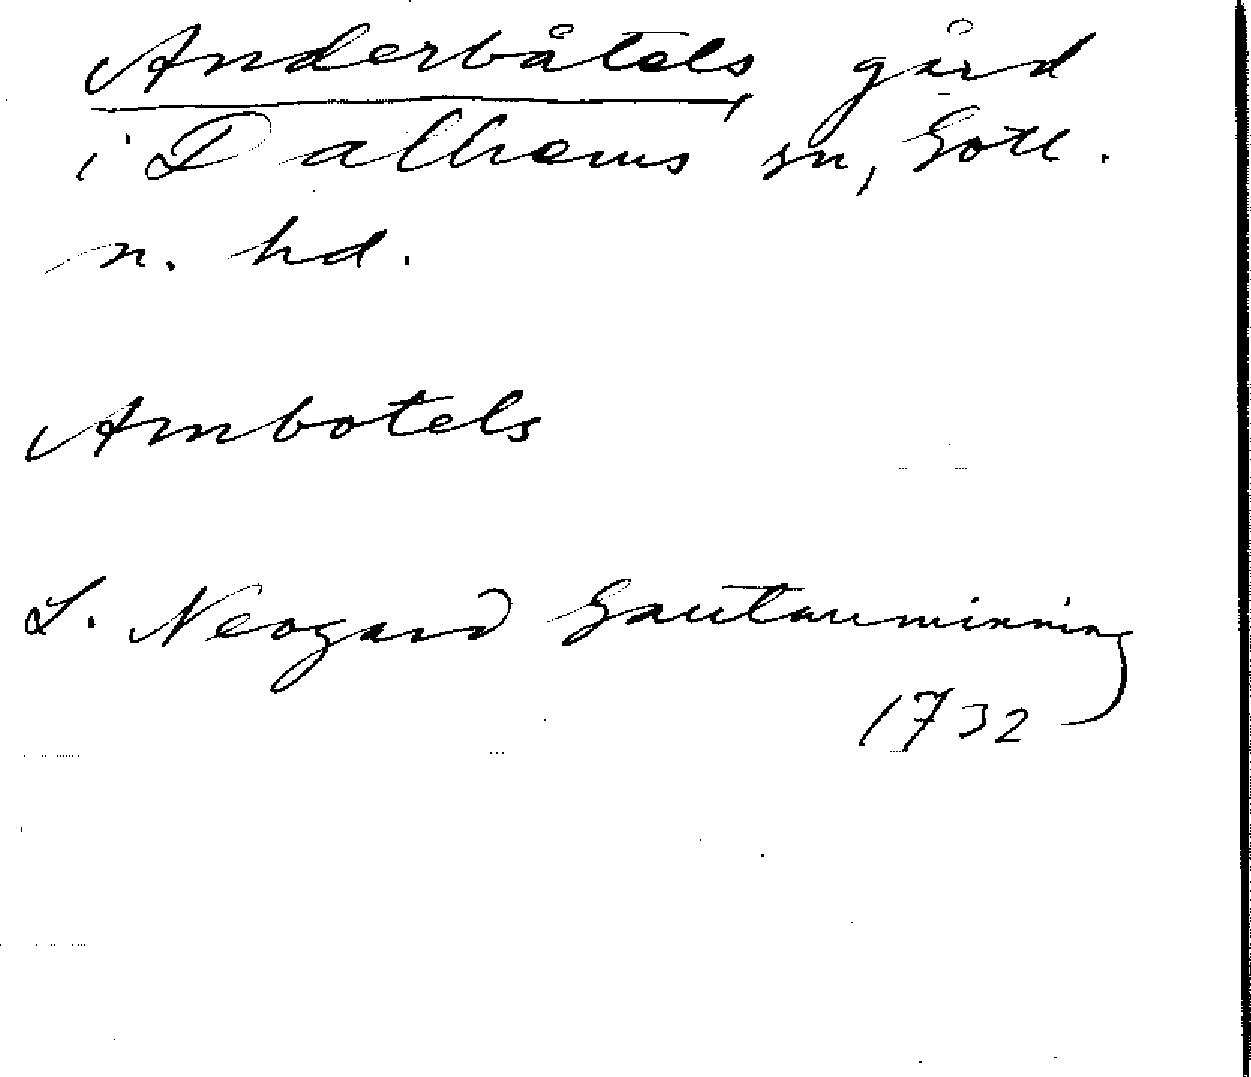 Anderbåtels, gård
i Dalhems sn, Gotl.
n. hd.
Ambotels
L. Neogard Gautauminning
1732